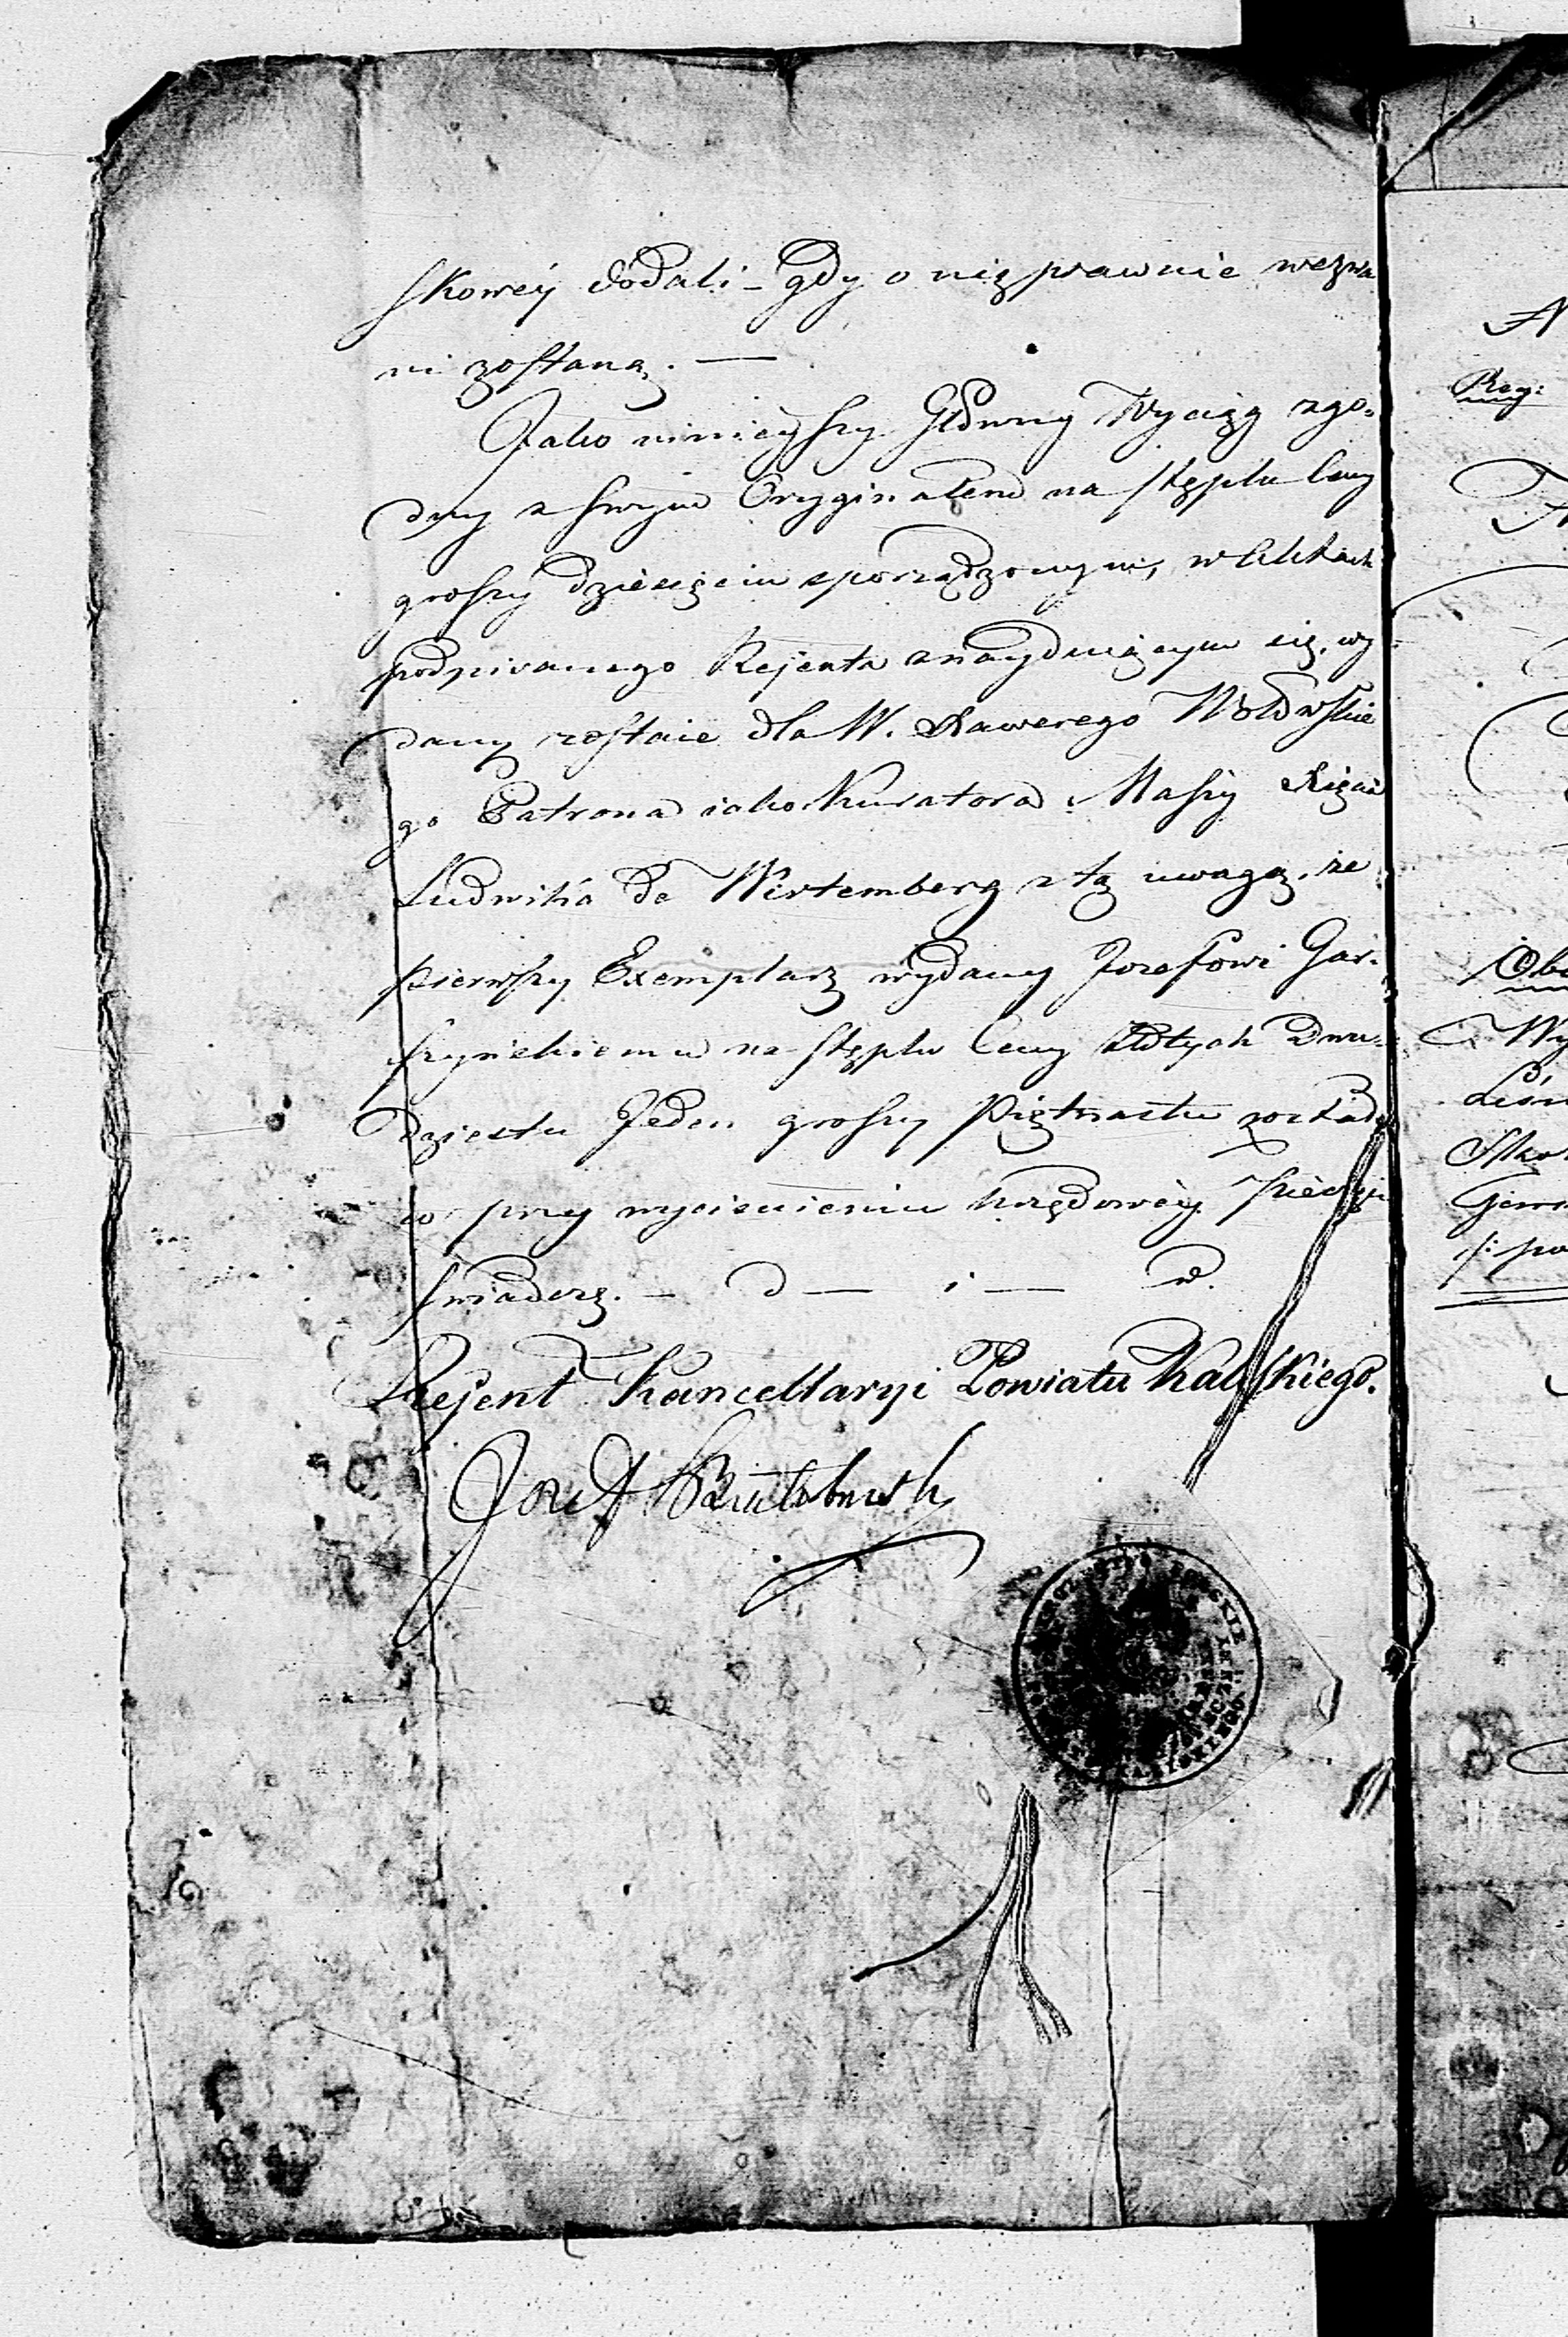 skowéy dodali – gdy o nię prawnie wezwa
ni zostaną. —
Jako ninieyszy Główny Wyciąg zgo=
dny z swym Oryginałem na stęplu Ceny
groszy dziesięciu sporządzonym, w Aktach
podpisanego Rejenta znayduiącym się, wy
dany zostaie dla W. Xawerego Wołowskie
go Patrona iako Kuratora Massy Xięcia
Ludwika de Wirtemberg z tą uwagą, że
pierwszy Exemplarz wydany Jozefowi Gar=
na stęplu Ceny Złotych Dwu=
dziestu Jeden groszy Piętnastu został
co przy wyciśnieniu Urzędowéy Pieczęci
świadczę. — D — i — w.
Rejent Kancellaryi Powiatu Kaliskiego.
Jozef
POLSKIE
Ny
Reg:
Wy
po